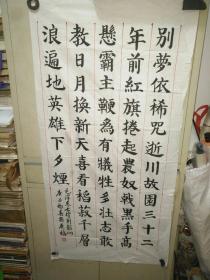 別夢依稀咒逝川故園三十二
年前紅旗捲起農奴戟黑手高
懸霸主鞭為有犧牲多壮志敢
教日月换新天喜看稻菽千層
浪遍地英雄下夕煙